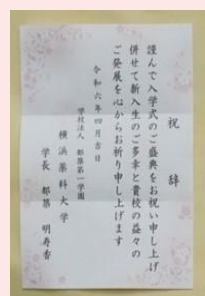 祝　辞
謹んで入学式のご盛典をお祝い申し上げ
併せて新入生のご多幸と貴校の益々の
ご発展を心からお祈り申し上げます
令和六年四月吉日
学校法人　都築第一学園
横浜薬科大学
学長　都築　明寿香